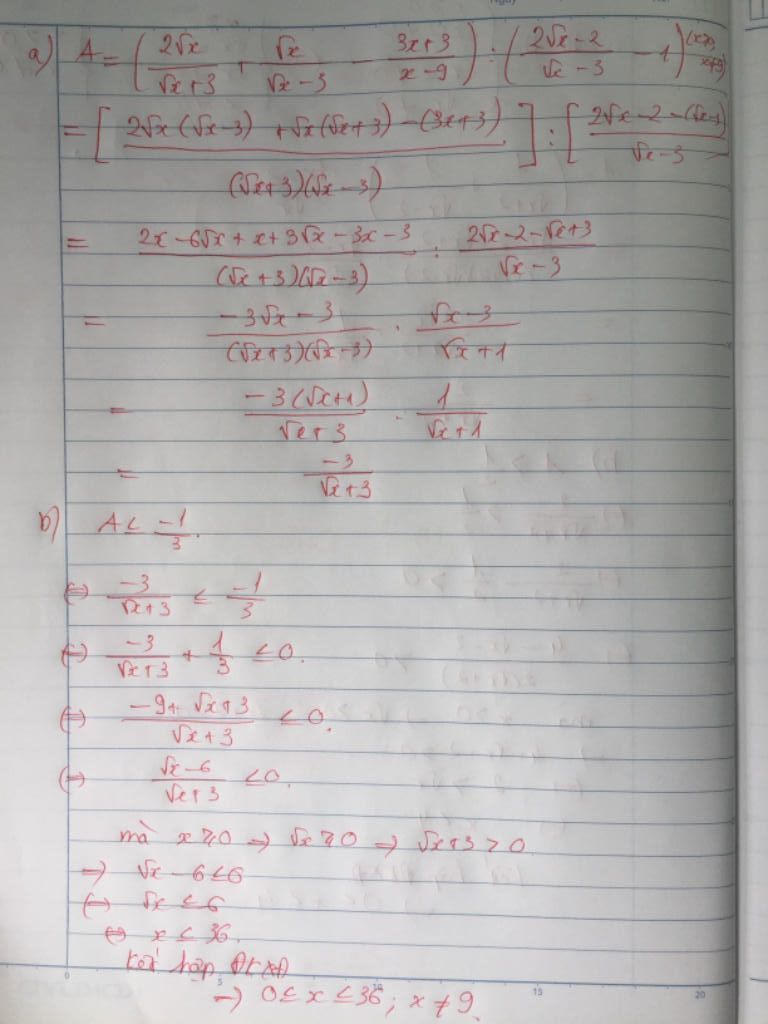 a) A = (2√x/(√x+3) + √x/(√x-3) - (3x+3)/(x-9)) : ((2√x-2)/(√x-3) - 1) (x≥0, x≠9)
= [(2√x(√x-3) + √x(√x+3) - (3x+3))/((√x+3)(√x-3))] : [(2√x-2-(√x-3))/(√x-3)
= (2x-6√x+x+3√x-3x-3)/((√x+3)(√x-3)) : (2√x-2-√x+3)/(√x-3)
= (-3√x-3)/((√x+3)(√x-3)) . (√x-3)/(√x+1)
= (-3(√x+1))/(√x+3) . 1/(√x+1)
= -3/(√x+3)
b) A ≤ -1/3.
⇔ -3/(√x+3) ≤ -1/3
⇔ -3/(√x+3) + 1/3 ≤ 0.
⇔ (-9+√x+3)/(√x+3) ≤ 0.
⇔ (√x-6)/(√x+3) ≤ 0.
mà x ≥ 0 ⇒ √x ≥ 0 ⇒ √x+3 > 0
⇒ √x - 6 ≤ 6
⇔ √x ≤ 6
⇔ x ≤ 36.
Kết hợp ĐKXĐ
⇒ 0 ≤ x ≤ 36; x ≠ 9.
0 5 10 15 20